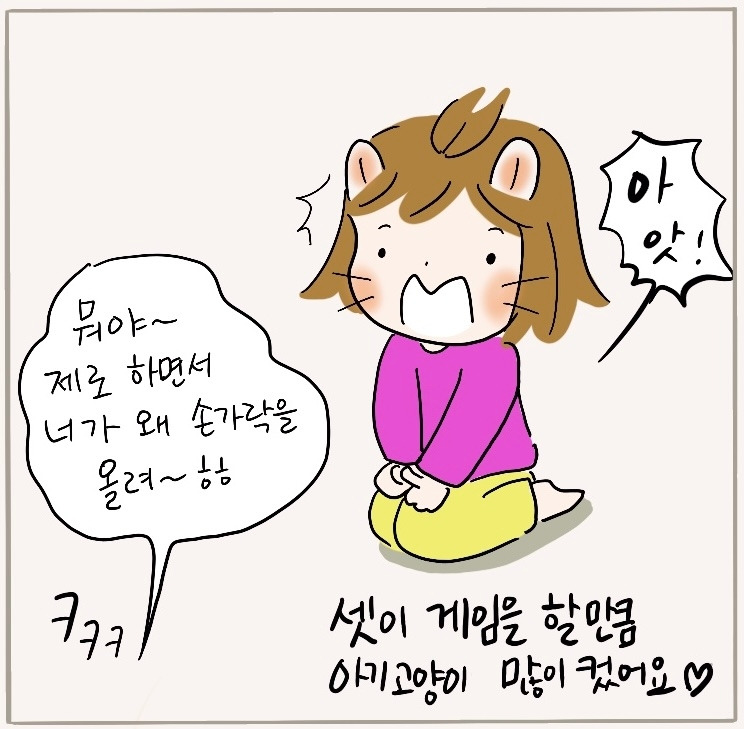 아
앗!
뭐야~
제로 하면서
너가 왜 손가락을
올려~ ㅎㅎ
ㅋㅋㅋ
셋이 게임을 할만큼
아기고양이 많이 컸어요♡